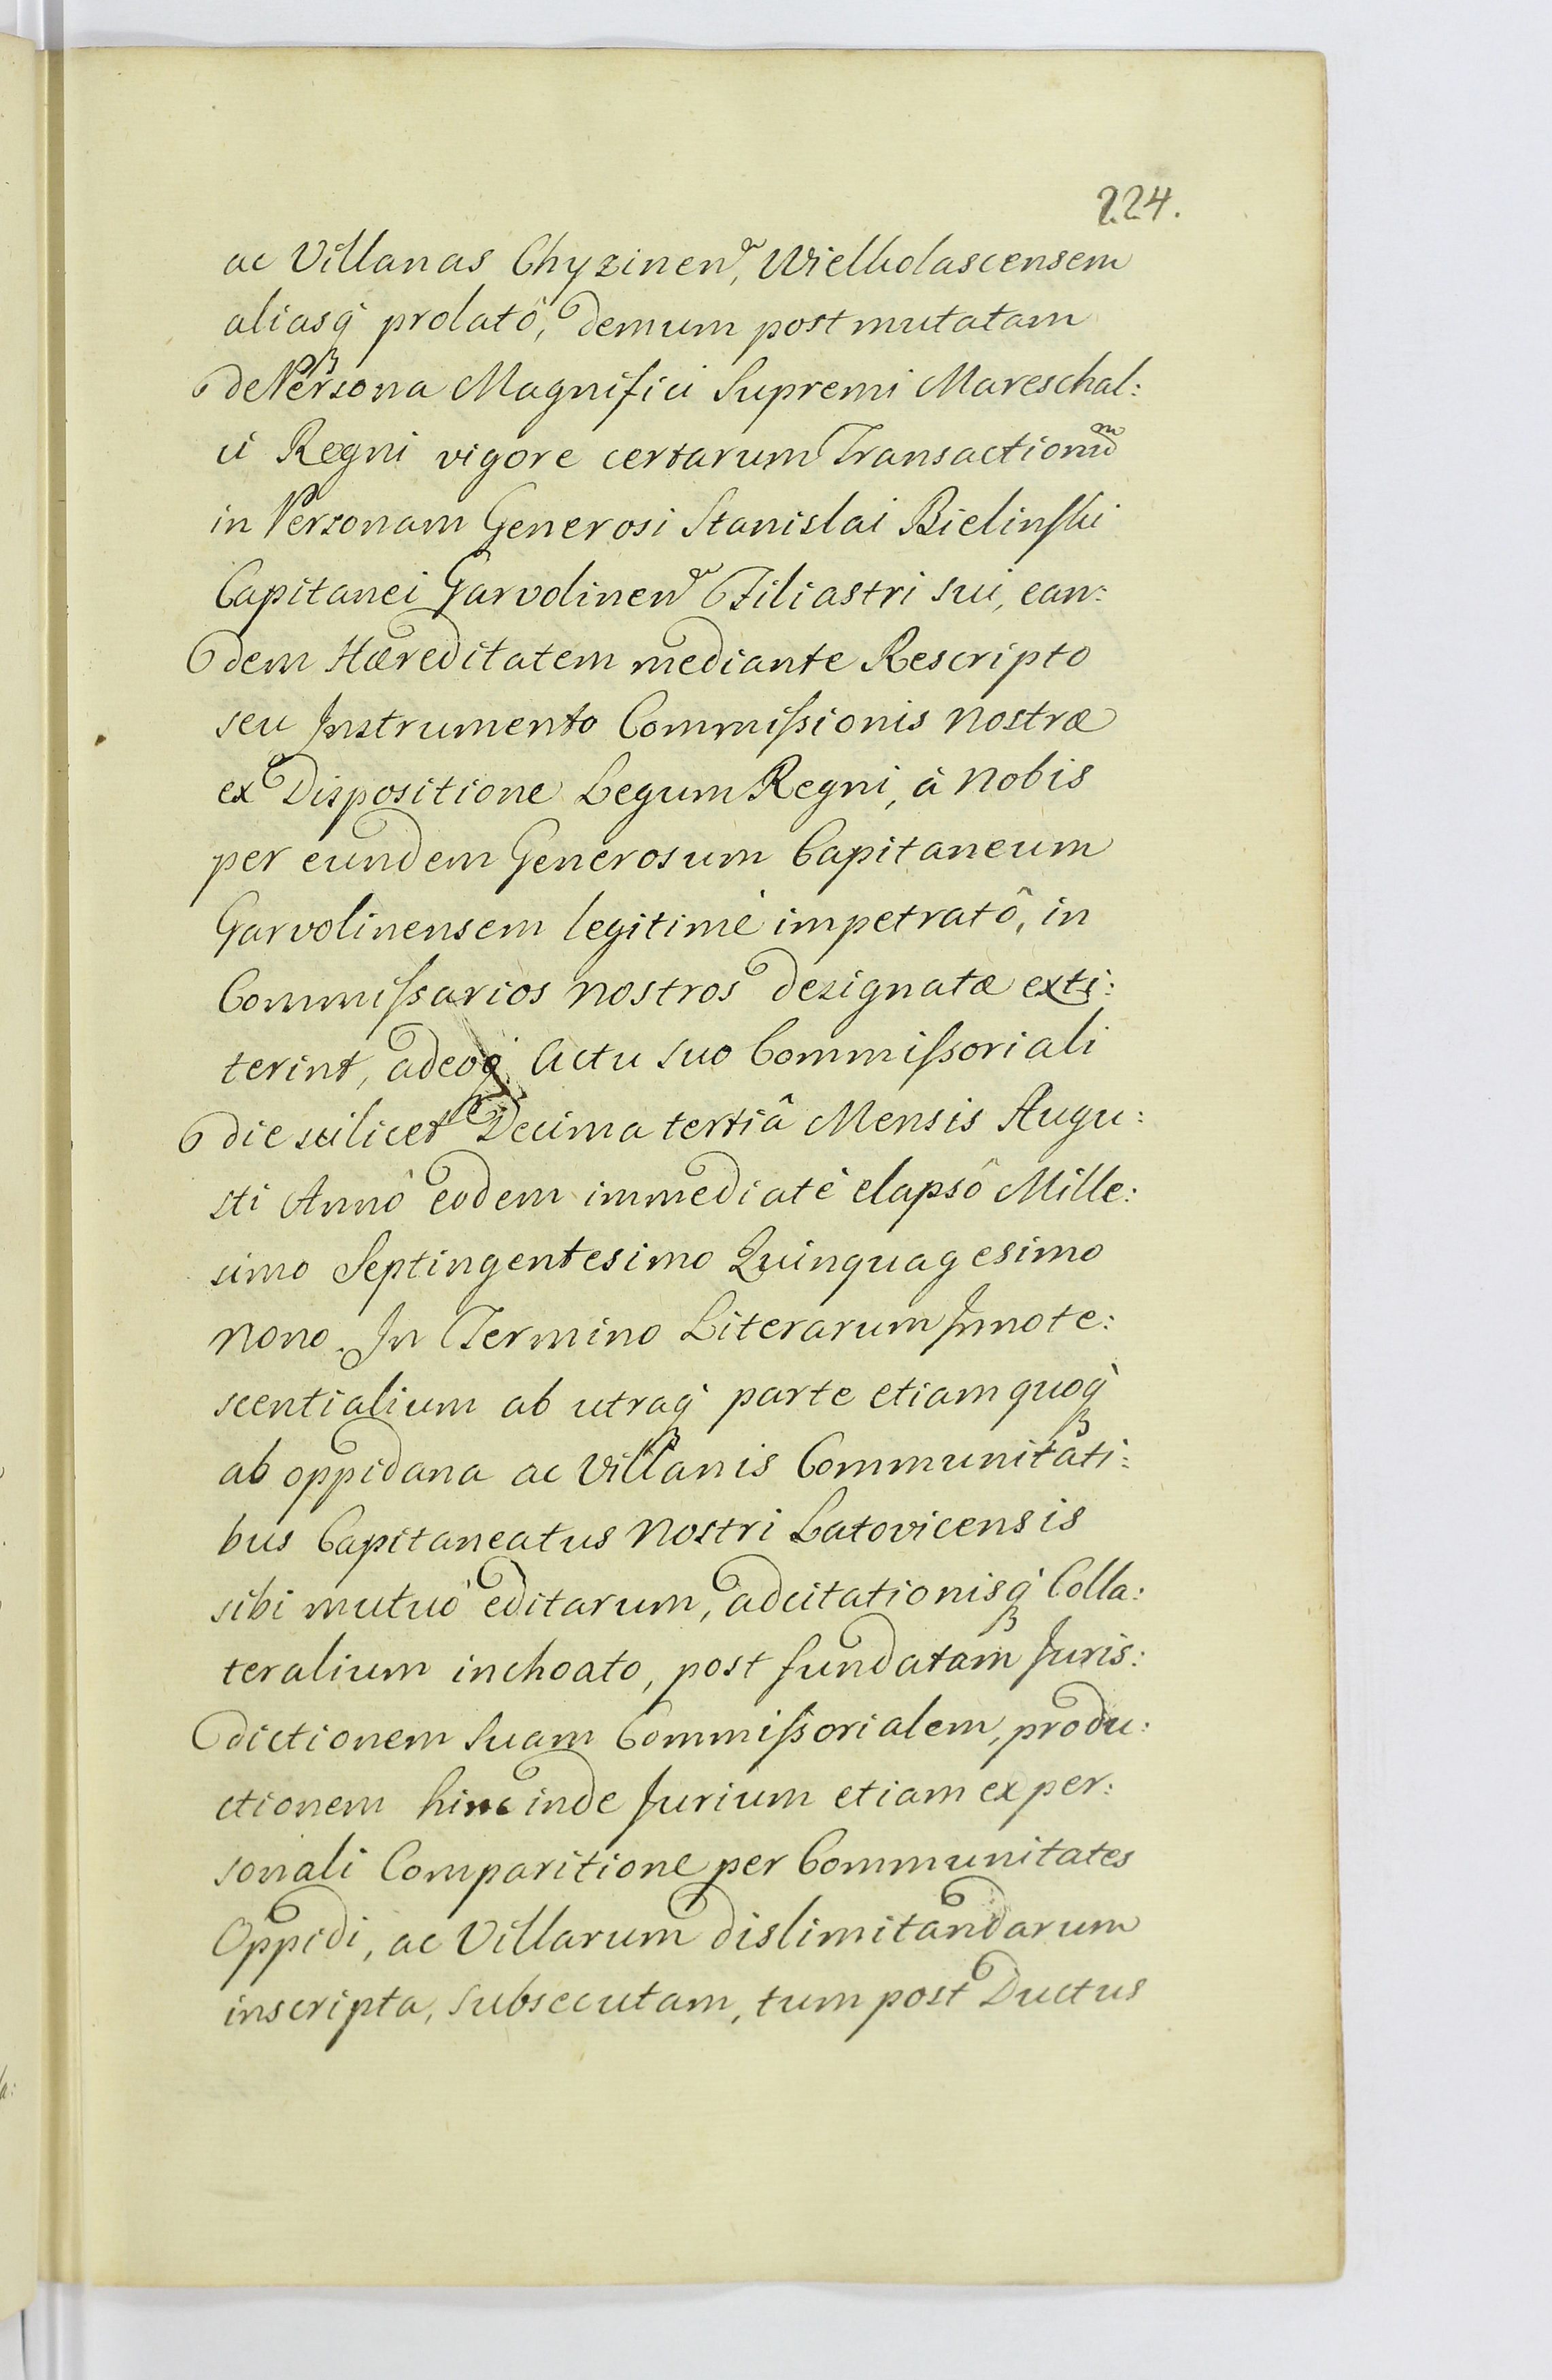 224.
ac Villanas Chyzinen, Wielholascensem
aliasq̀ prolatô, demum post mutatam
de Persona Magnifici Supremi Mareschal:
ci Regni vigore certarum Transactionum
in Personam Generosi Stanislai Bielinski
Capitanei Garvolinen Filiastri sui, ean:
dem Hæreditatem mediante Rescripto
seu Instrumento Commissionis nostræ
ex Dispositione Legum Regni, à nobis
per eundem Generosum Capitaneum
Garvolinensem legitimè impetratô, in
Commissarios nostros designatæ exti:
terint, adeoq̀ Actu suo Commissoriali
die scilicet Decima tertiâ Mensis Augu:
sti Annô eodem immediatè elapsô Mille:
simo Septingentesimo Quinquagesimo
nono. In Termino Literarum Innote:
scentialium ab utraq̀ parte etiam quoq̀
ab oppidana ac Villanis Communitati:
bus Capitaneatus nostri Latovicensis
sibi mutuò editarum, adcitationisq̀ Colla:
teralium inchoato, post fundatam Juris:
dictionem suam Commissorialem, produ:
ctionem hinc inde Jurium etiam ex per:
sonali Comparitione per Communitates
Oppidi, ac Villarum dislimitandarum
inscripta, subsecutam, tum post Ductus